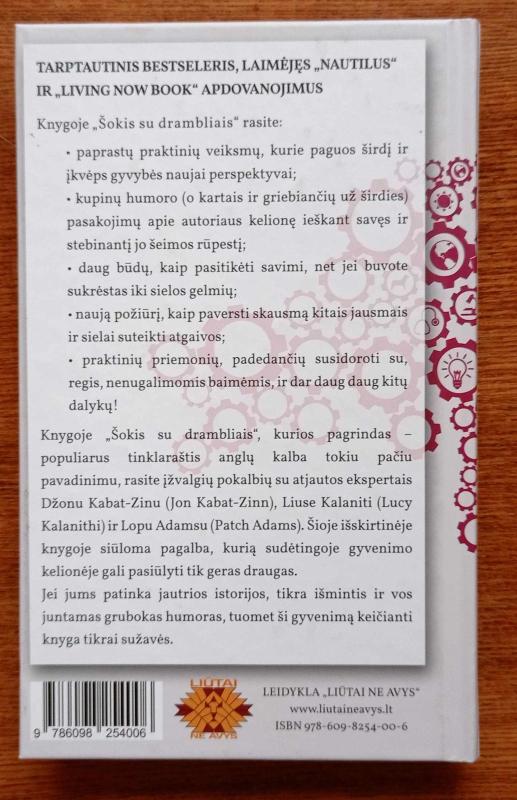 TARPTAUTINIS BESTSELERIS, LAIMĖJĘS „NAUTILUS“
IR „LIVING NOW BOOK“ APDOVANOJIMUS
Knygoje „Šokis su drambliais“ rasite:
• paprastų praktinių veiksmų, kurie paguos širdį ir
įkvėps gyvybės naujai perspektyvai;
• kupinų humoro (o kartais ir griebiančių už širdies)
pasakojimų apie autoriaus kelionę ieškant savęs ir
stebinantį jo šeimos rūpestį;
• daug būdų, kaip pasitikėti savimi, net jei buvote
sukrėstas iki sielos gelmių;
• naują požiūrį, kaip paversti skausmą kitais jausmais
ir sielai suteikti atgaivos;
• praktinių priemonių, padedančių susidoroti su,
regis, nenugalimomis baimėmis, ir dar daug daug kitų
dalykų!
Knygoje „Šokis su drambliais“, kurios pagrindas –
populiarus tinklaraštis anglų kalba tokiu pačiu
pavadinimu, rasite įžvalgių pokalbių su atjautos ekspertais
Džonu Kabat-Zinu (Jon Kabat-Zinn), Liuse Kalaniti (Lucy
Kalanithi) ir Lopu Adamsu (Patch Adams). Šioje išskirtinėje
knygoje siūloma pagalba, kurią sudėtingoje gyvenimo
kelionėje gali pasiūlyti tik geras draugas.
Jei jums patinka jautrios istorijos, tikra išmintis ir vos
juntamas grubokas humoras, tuomet ši gyvenimą keičianti
knyga tikrai sužavės.
9 786098 254006
LIŪTAI
NE AVYS
LEIDYKLA „LIŪTAI NE AVYS“
www.liutaineavys.lt
ISBN 978-609-8254-00-6